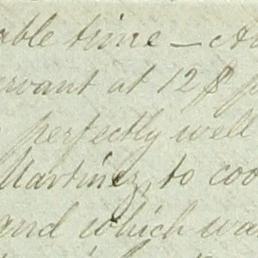 able time — A
rvant at 12$ p
perfectly well
Martinez, to coo
and which wa